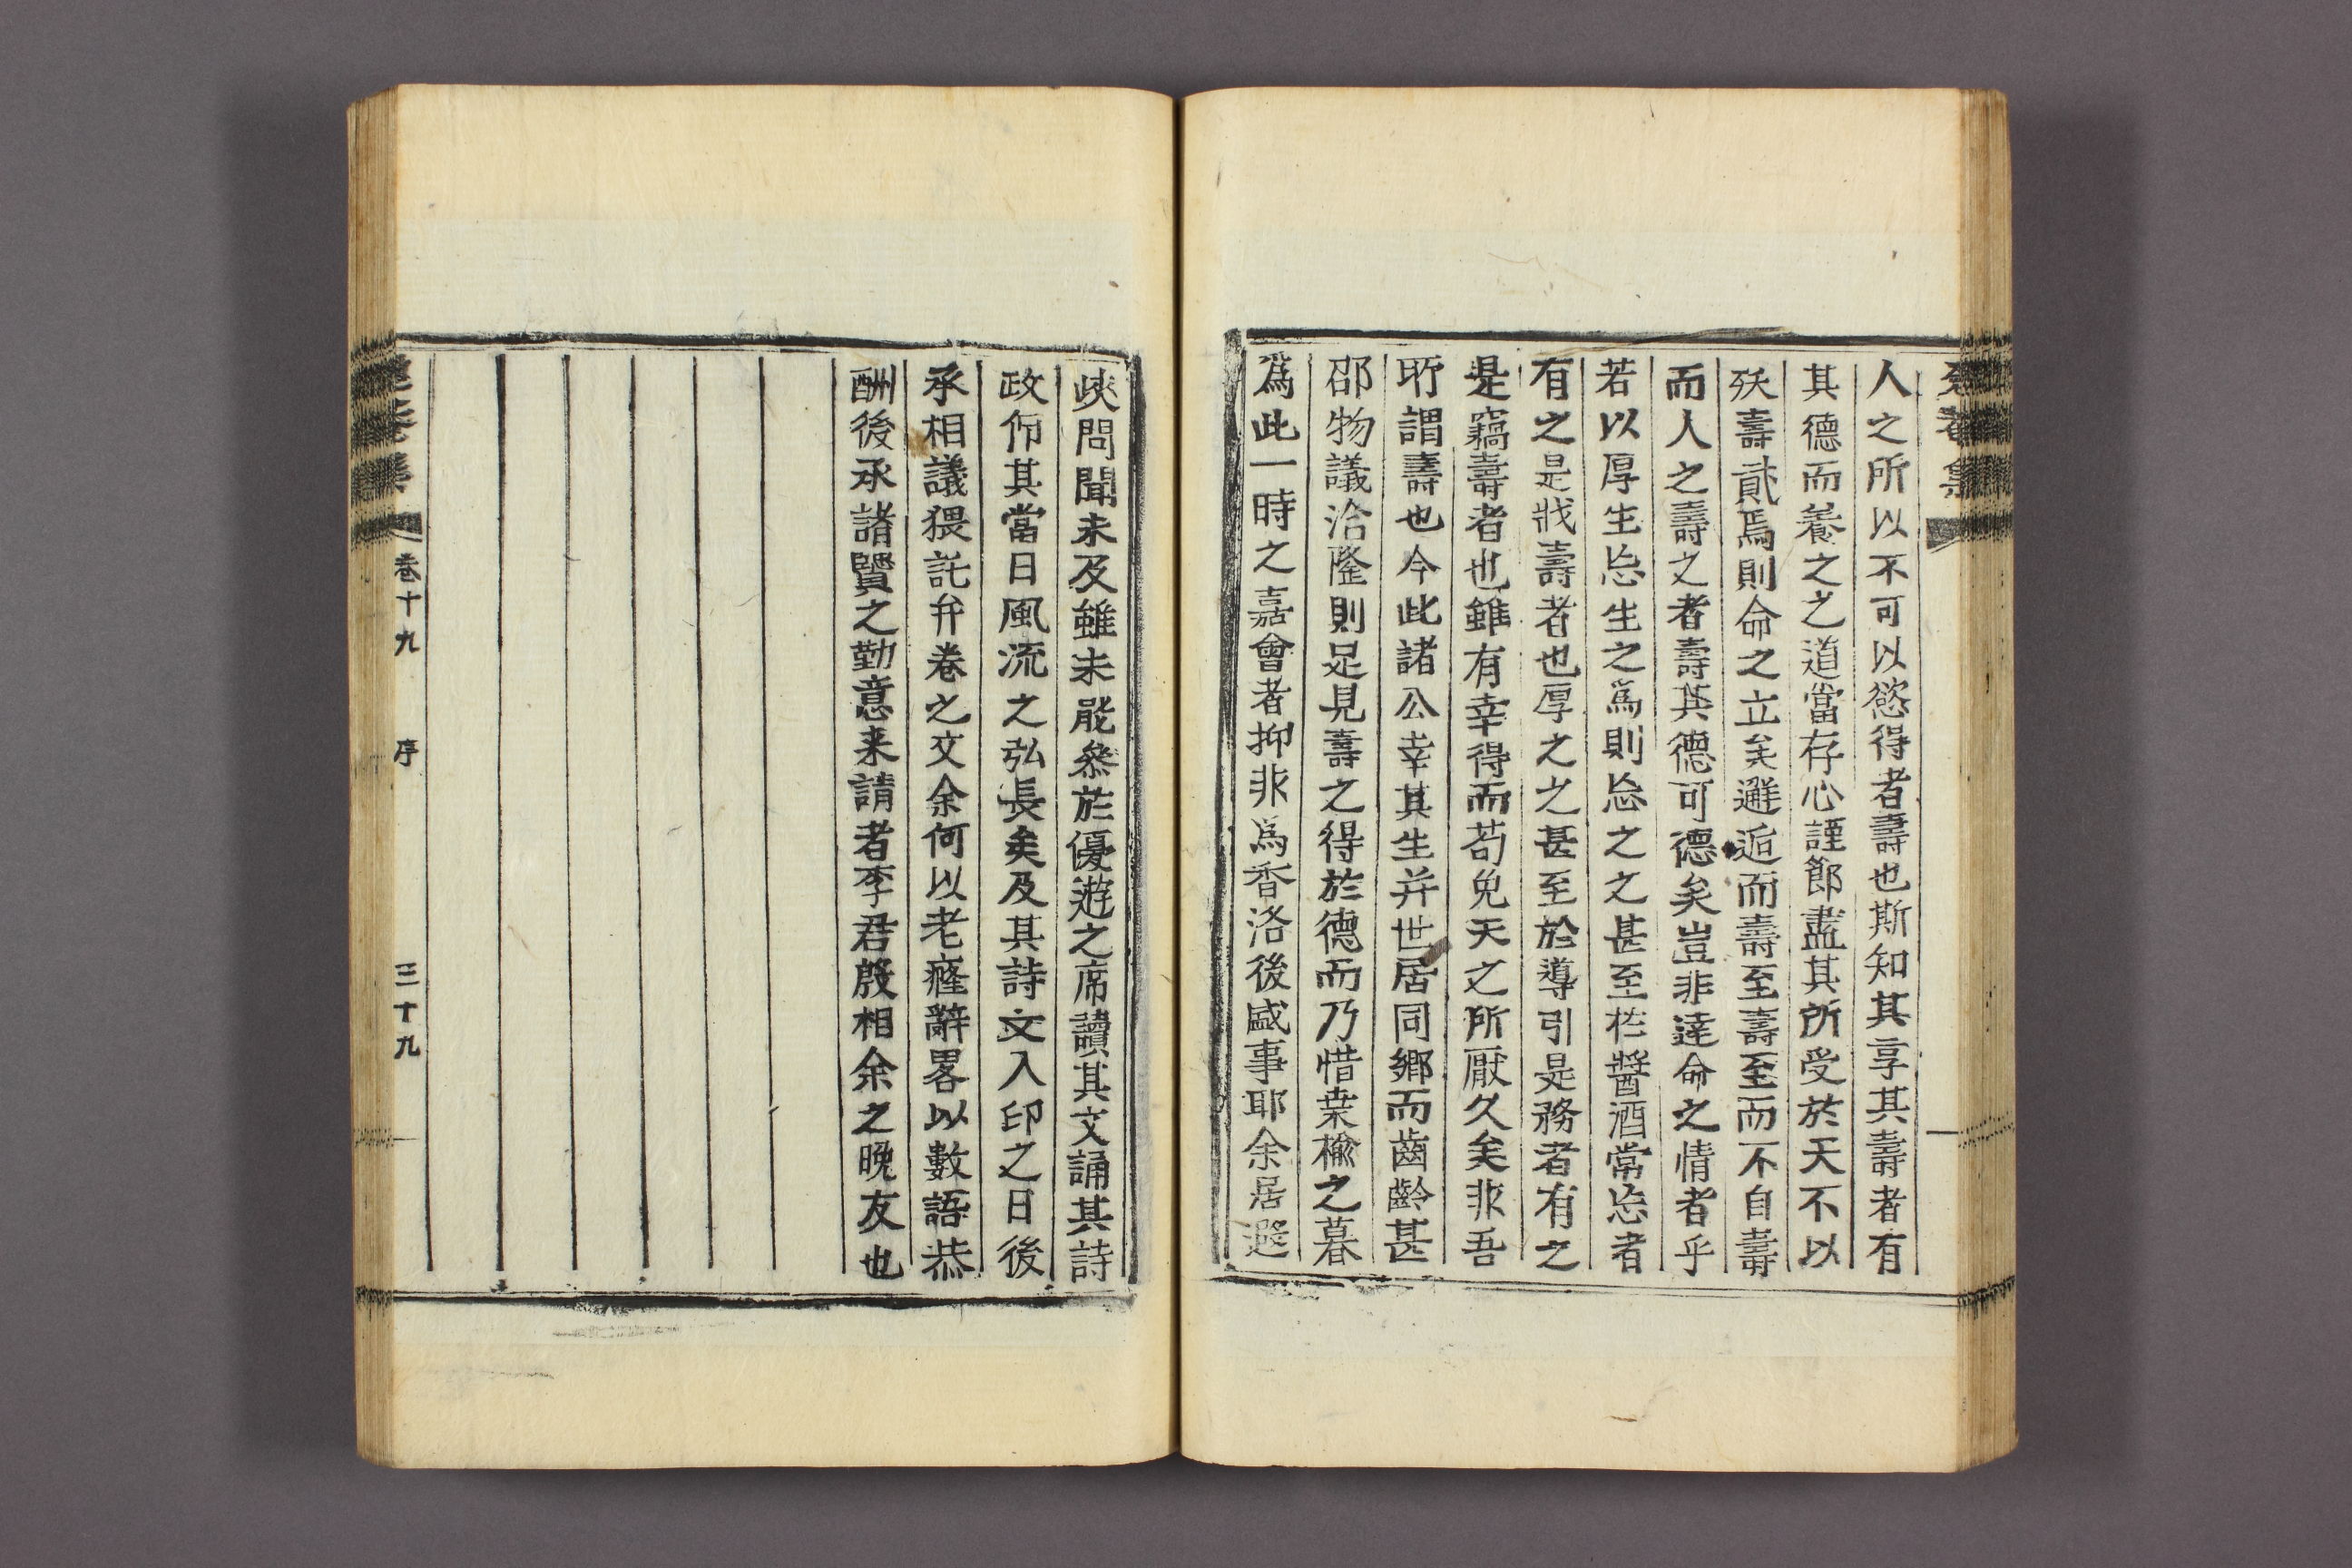 人之所以不可以慾得者壽也斯知其享其壽者有
其德而養之之道當存心謹節盡其所受於天不以
殀壽貳焉則命之立矣邂逅而壽至壽至而不自壽
而人之壽之者壽其德可德矣豈非達命之情者乎
若以厚生㤀生之爲則㤀之之甚至於醬酒常㤀者
有之是戕壽者也厚之之甚至於導引是務者有之
是竊壽者也雖有幸得而苟免天之所厭久矣非吾
所謂壽也今此諸公幸其生并世居同鄉而齒齡甚
卲物議洽隆則足見壽之得於德而乃惜桒楡之暮
爲此一時之嘉會者抑非爲香洛後盛事耶余居遐
峽問聞未及雖未能叅於優遊之席讀其文誦其詩
政仰其當日風流之弘長矣及其詩文入印之日後
承相議猥託弁卷之文余何以老癃辭畧以數語恭
酬後承諸賢之勤意来請者李君殷相余之晩友也
卷十九 序 三十九